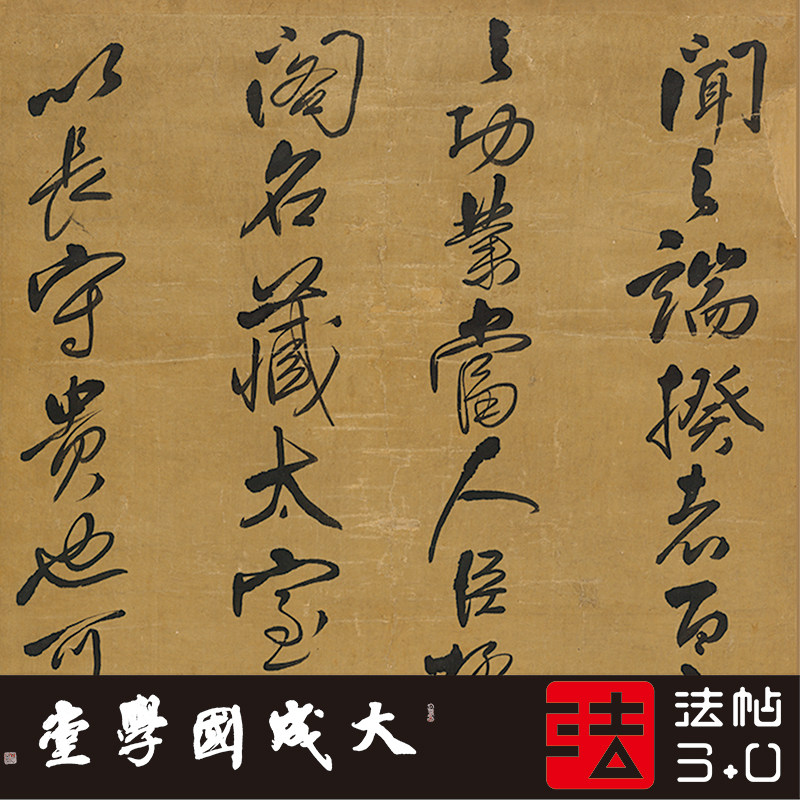 聞之端揆者百
之功業當人臣
閣名藏太室
以長守貴也可
大成國學堂
法
法帖
3.0